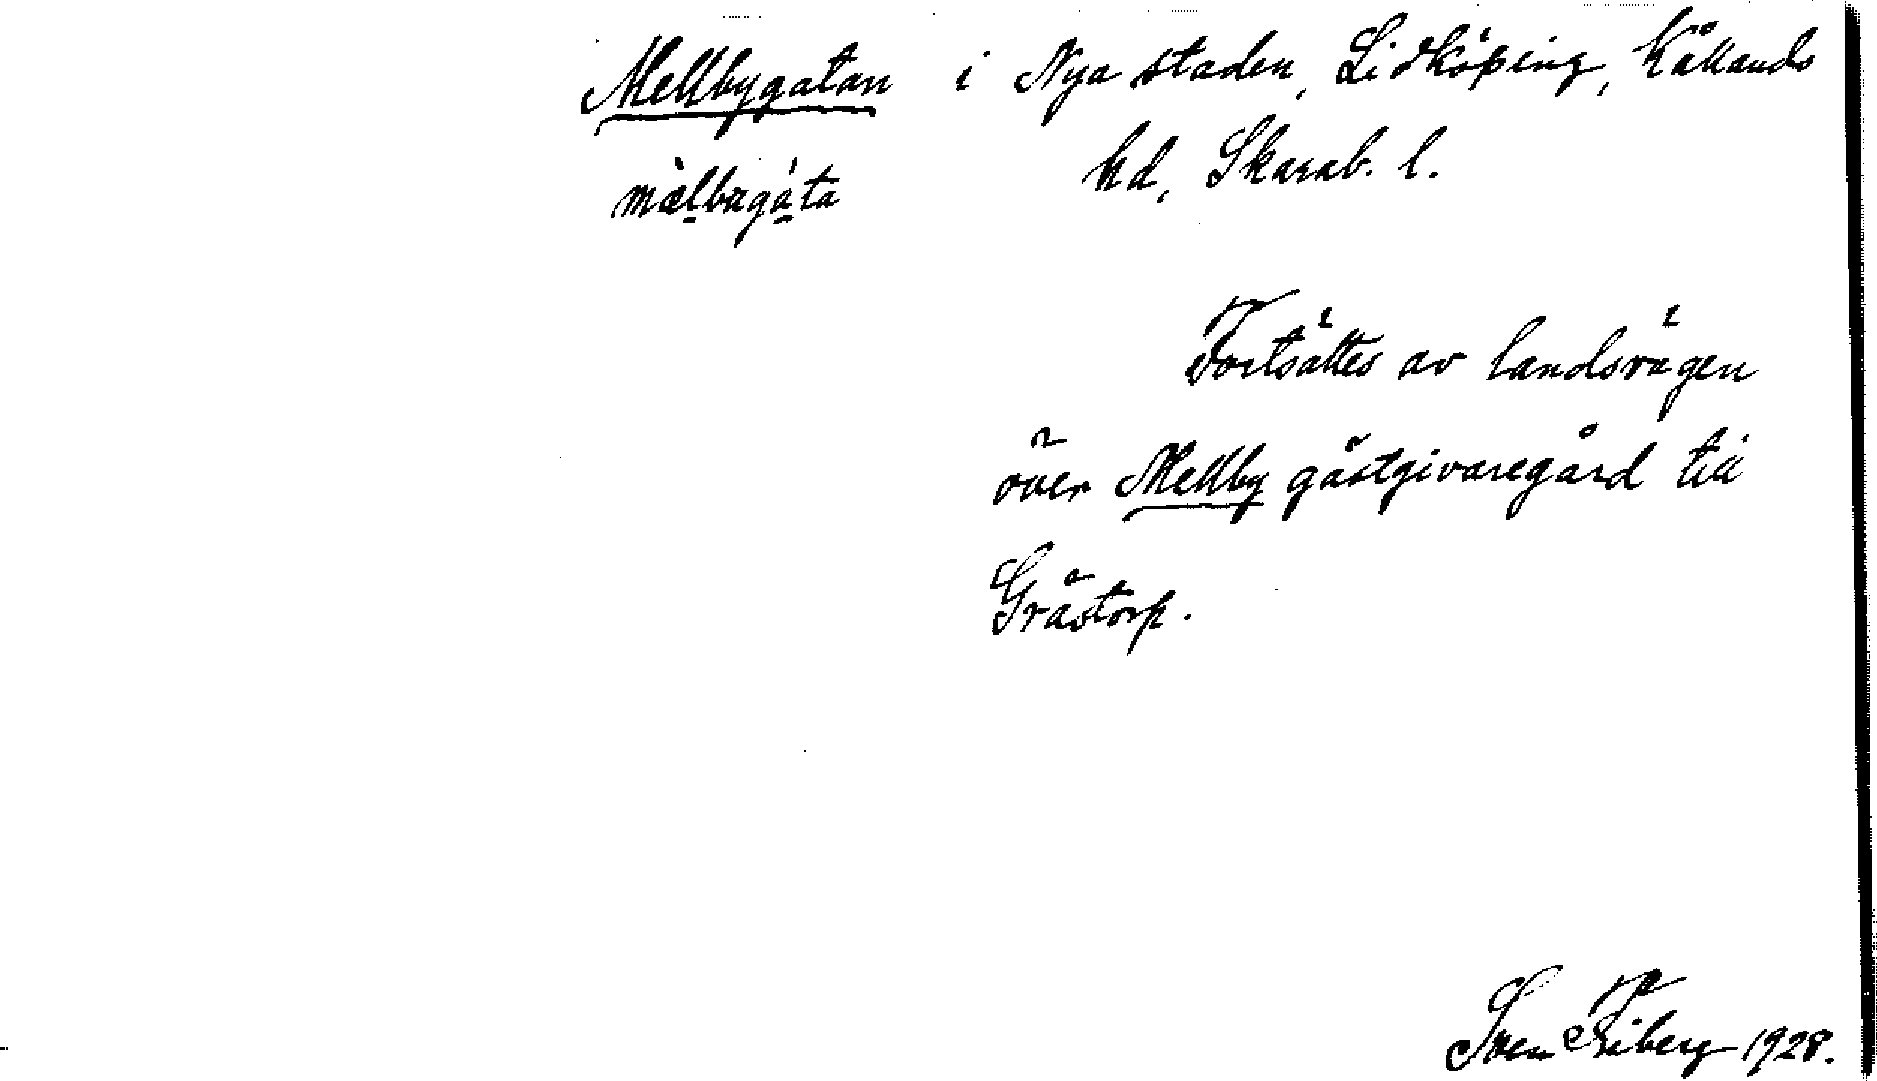 Mellbygatan i Nya staden, Lidköping, Kållands
mä̀lbagáta hd, Skarab. l.
Fortsättes av landsvägen
över Mellby gästgivaregård till
Grästorp.
Sven 1928.